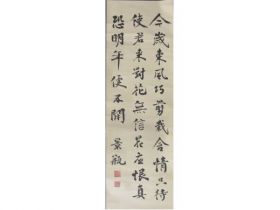 今歲東風巧剪裁含情只待
使君來對花無信花應恨直
恐明年便不開 景瓻